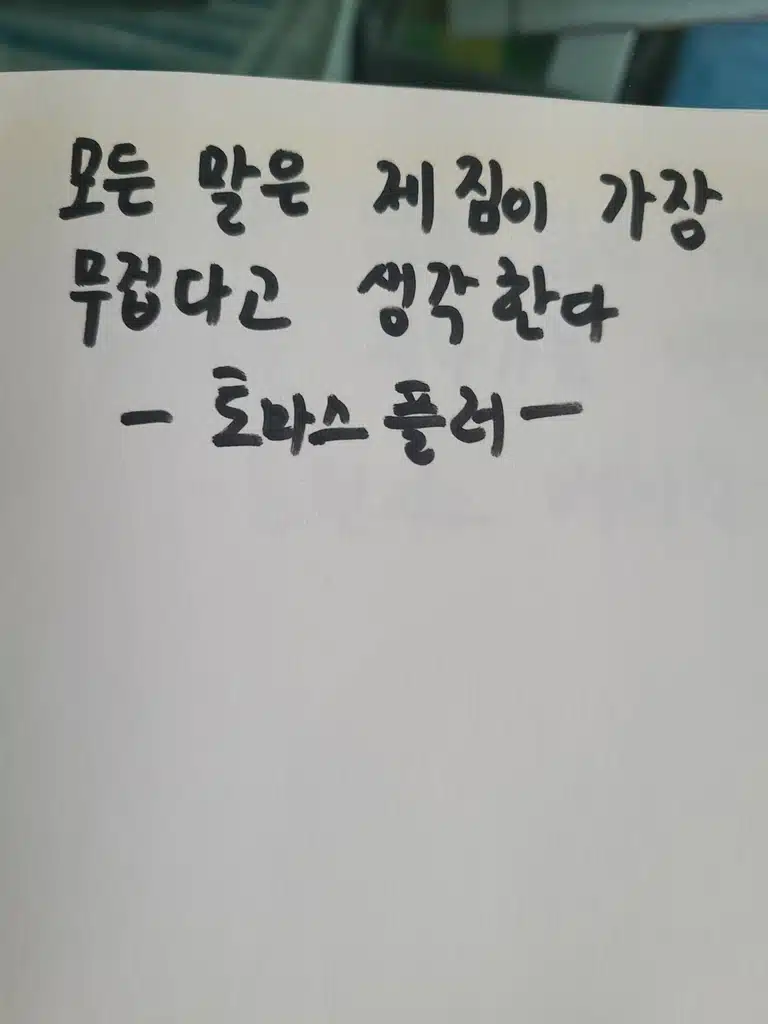 모든 말은 제 짐이 가장
무겁다고 생각한다
- 토마스 풀러 -